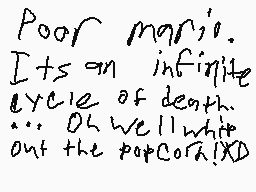 Poor mario.
Its an infinite
cycle of death.
... Oh well whip
out the popcorn!XD